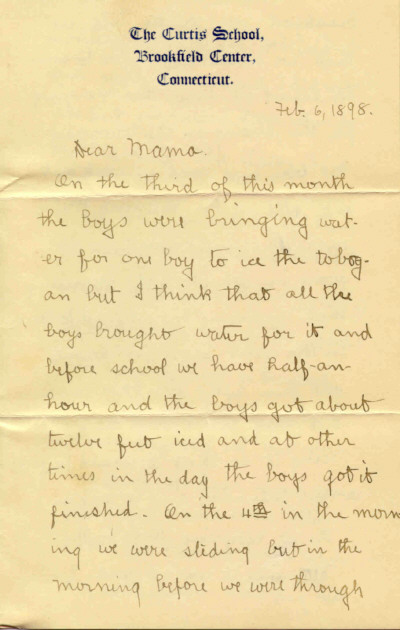 The Curtis School,
Brookfield Center,
Connecticut.
Feb. 6, 1898.
Dear Mama.
On the third of this month
the boys were bringing wat-
er for one boy to ice the tobog-
an but I think that all the
boys brought water for it and
before school we have half-an-
hour and the boys got about
twelve feet iced and at other
times in the day the boys got it
finished. On the 4th in the morn
ing we were sliding but in the
morning before we were through